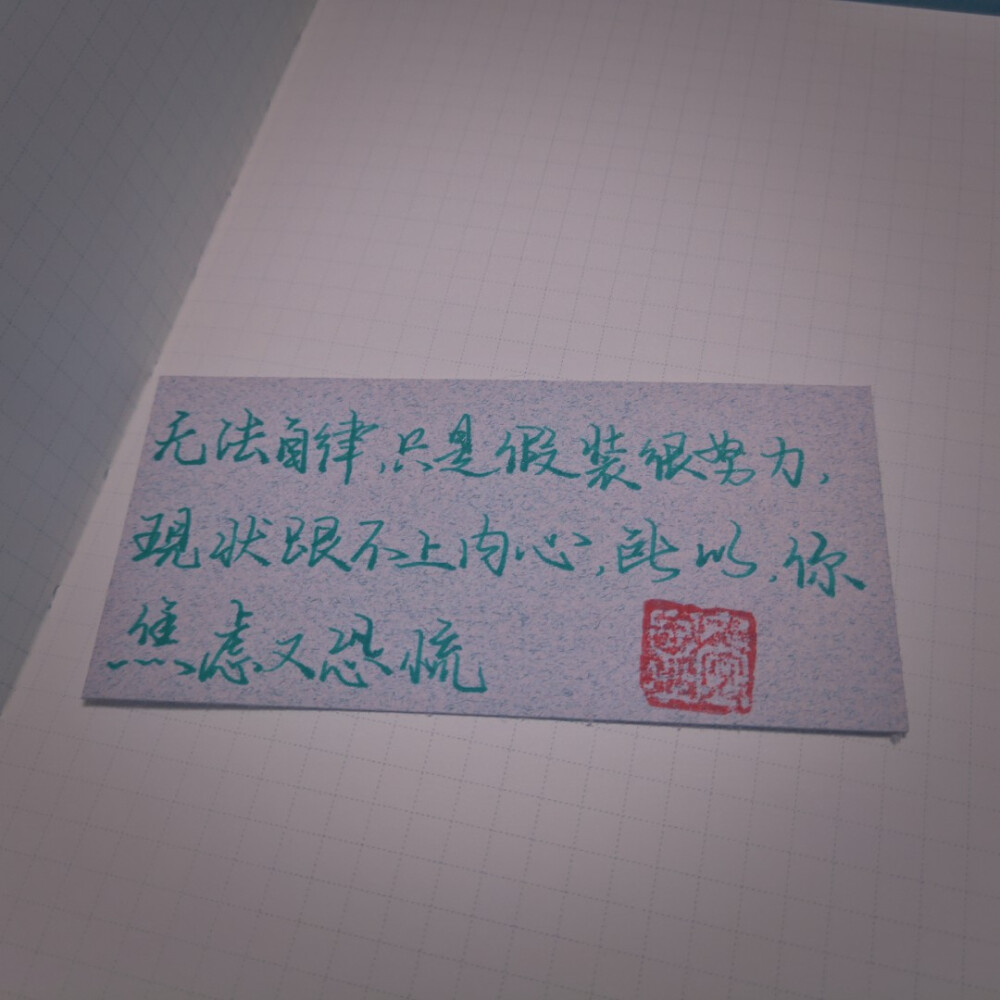 无法自律,只是假装很努力,
現状跟不上内心,所以,你
焦虑又恐慌